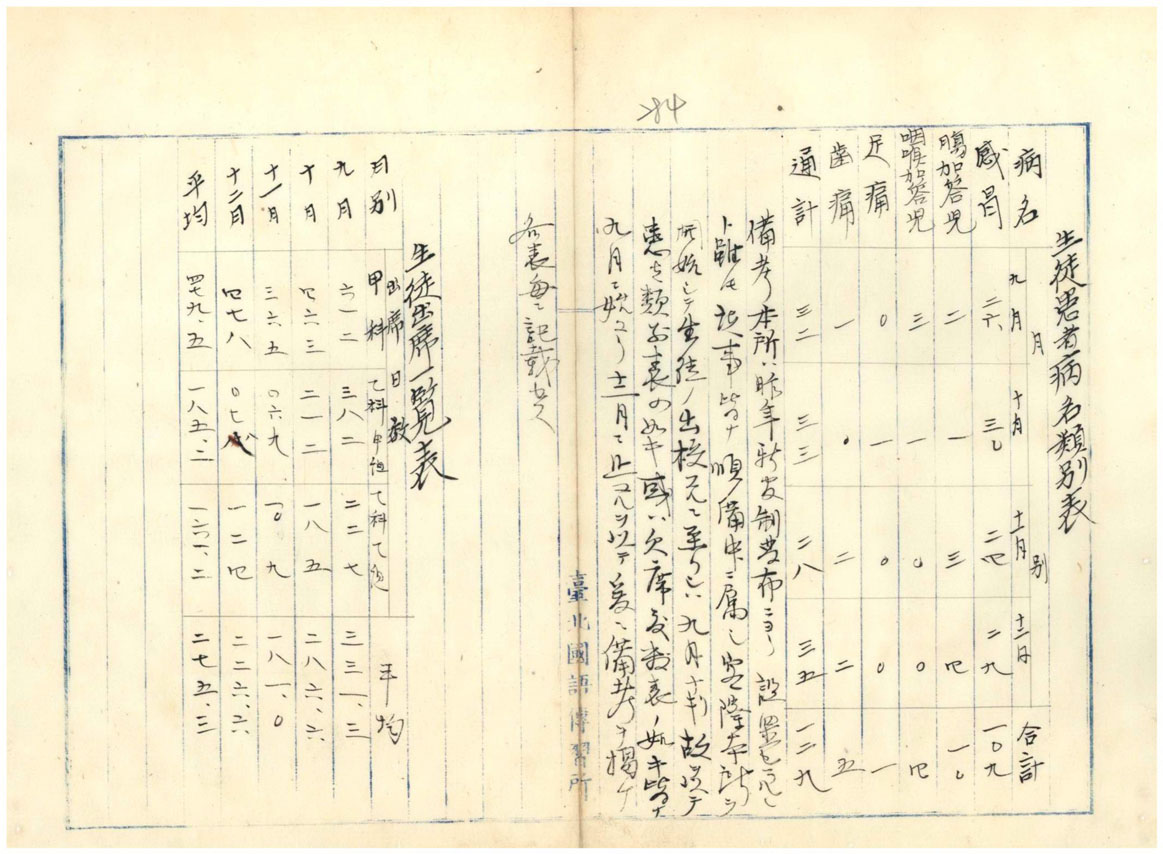 284
生徒患者病名類別表
病名 月別
九月 十月 十一月 十二月 合計
感冒 二六 三〇 二四 二九 一〇九
腸加答児 二 一 三 四 一〇
咽喉加答児 三 一 〇 〇 四
足痛 〇 一 〇 〇 一
歯痛 一 〇 二 二 五
通計 三二 三三 二八 三五 一二九
備考 本所ハ昨年新官制発布ニヨリ設置
ト雖モ 皆ナ順備中ニ属シ実際本所ヲ
開始シテ生徒ノ出校 ニ至リシハ九月 故ニ
患者類別表ノ如キ或ハ欠席 数表ノ如キ皆ナ
九月ニ始マリ十二月ニ止 ヲ以テ爰ニ備考ヲ掲ケ
各表毎ニ記載セス
臺北國語傳習所
生徒出席一覧表
月別 出席日数 平均
甲科 乙科甲組 乙科乙組
九月 六一二 三八二 二二七 三三一、三
十月 四六三 二一二 一八五 二八六、六
十一月 三六五 〇六九 一〇九 一八一、〇
十二月 四七八 〇七八 一二四 二二六、六
平均 四七九、五 一八五、二 一六一、二 二七五、三